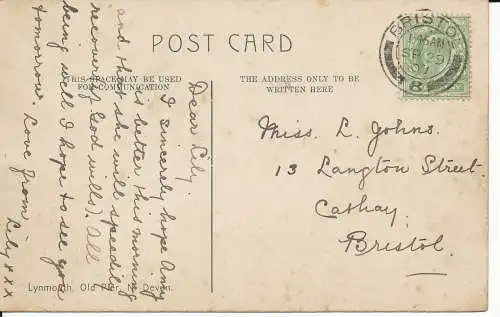 POST CARD
THIS SPACE MAY BE USED
FOR COMMUNICATION
THE ADDRESS ONLY TO BE
WRITTEN HERE
BRISTOL
Dear Lily.
I sincerely hope Amy
is better this morning
and that she will speedily
recover (God wills). All
being well I hope to see you
tomorrow. Love from
Lily xxx
Miss. L. Johns.
13 Langton Street.
Cathay.
Bristol.
Lynmouth, Old Pier, N. Devon.